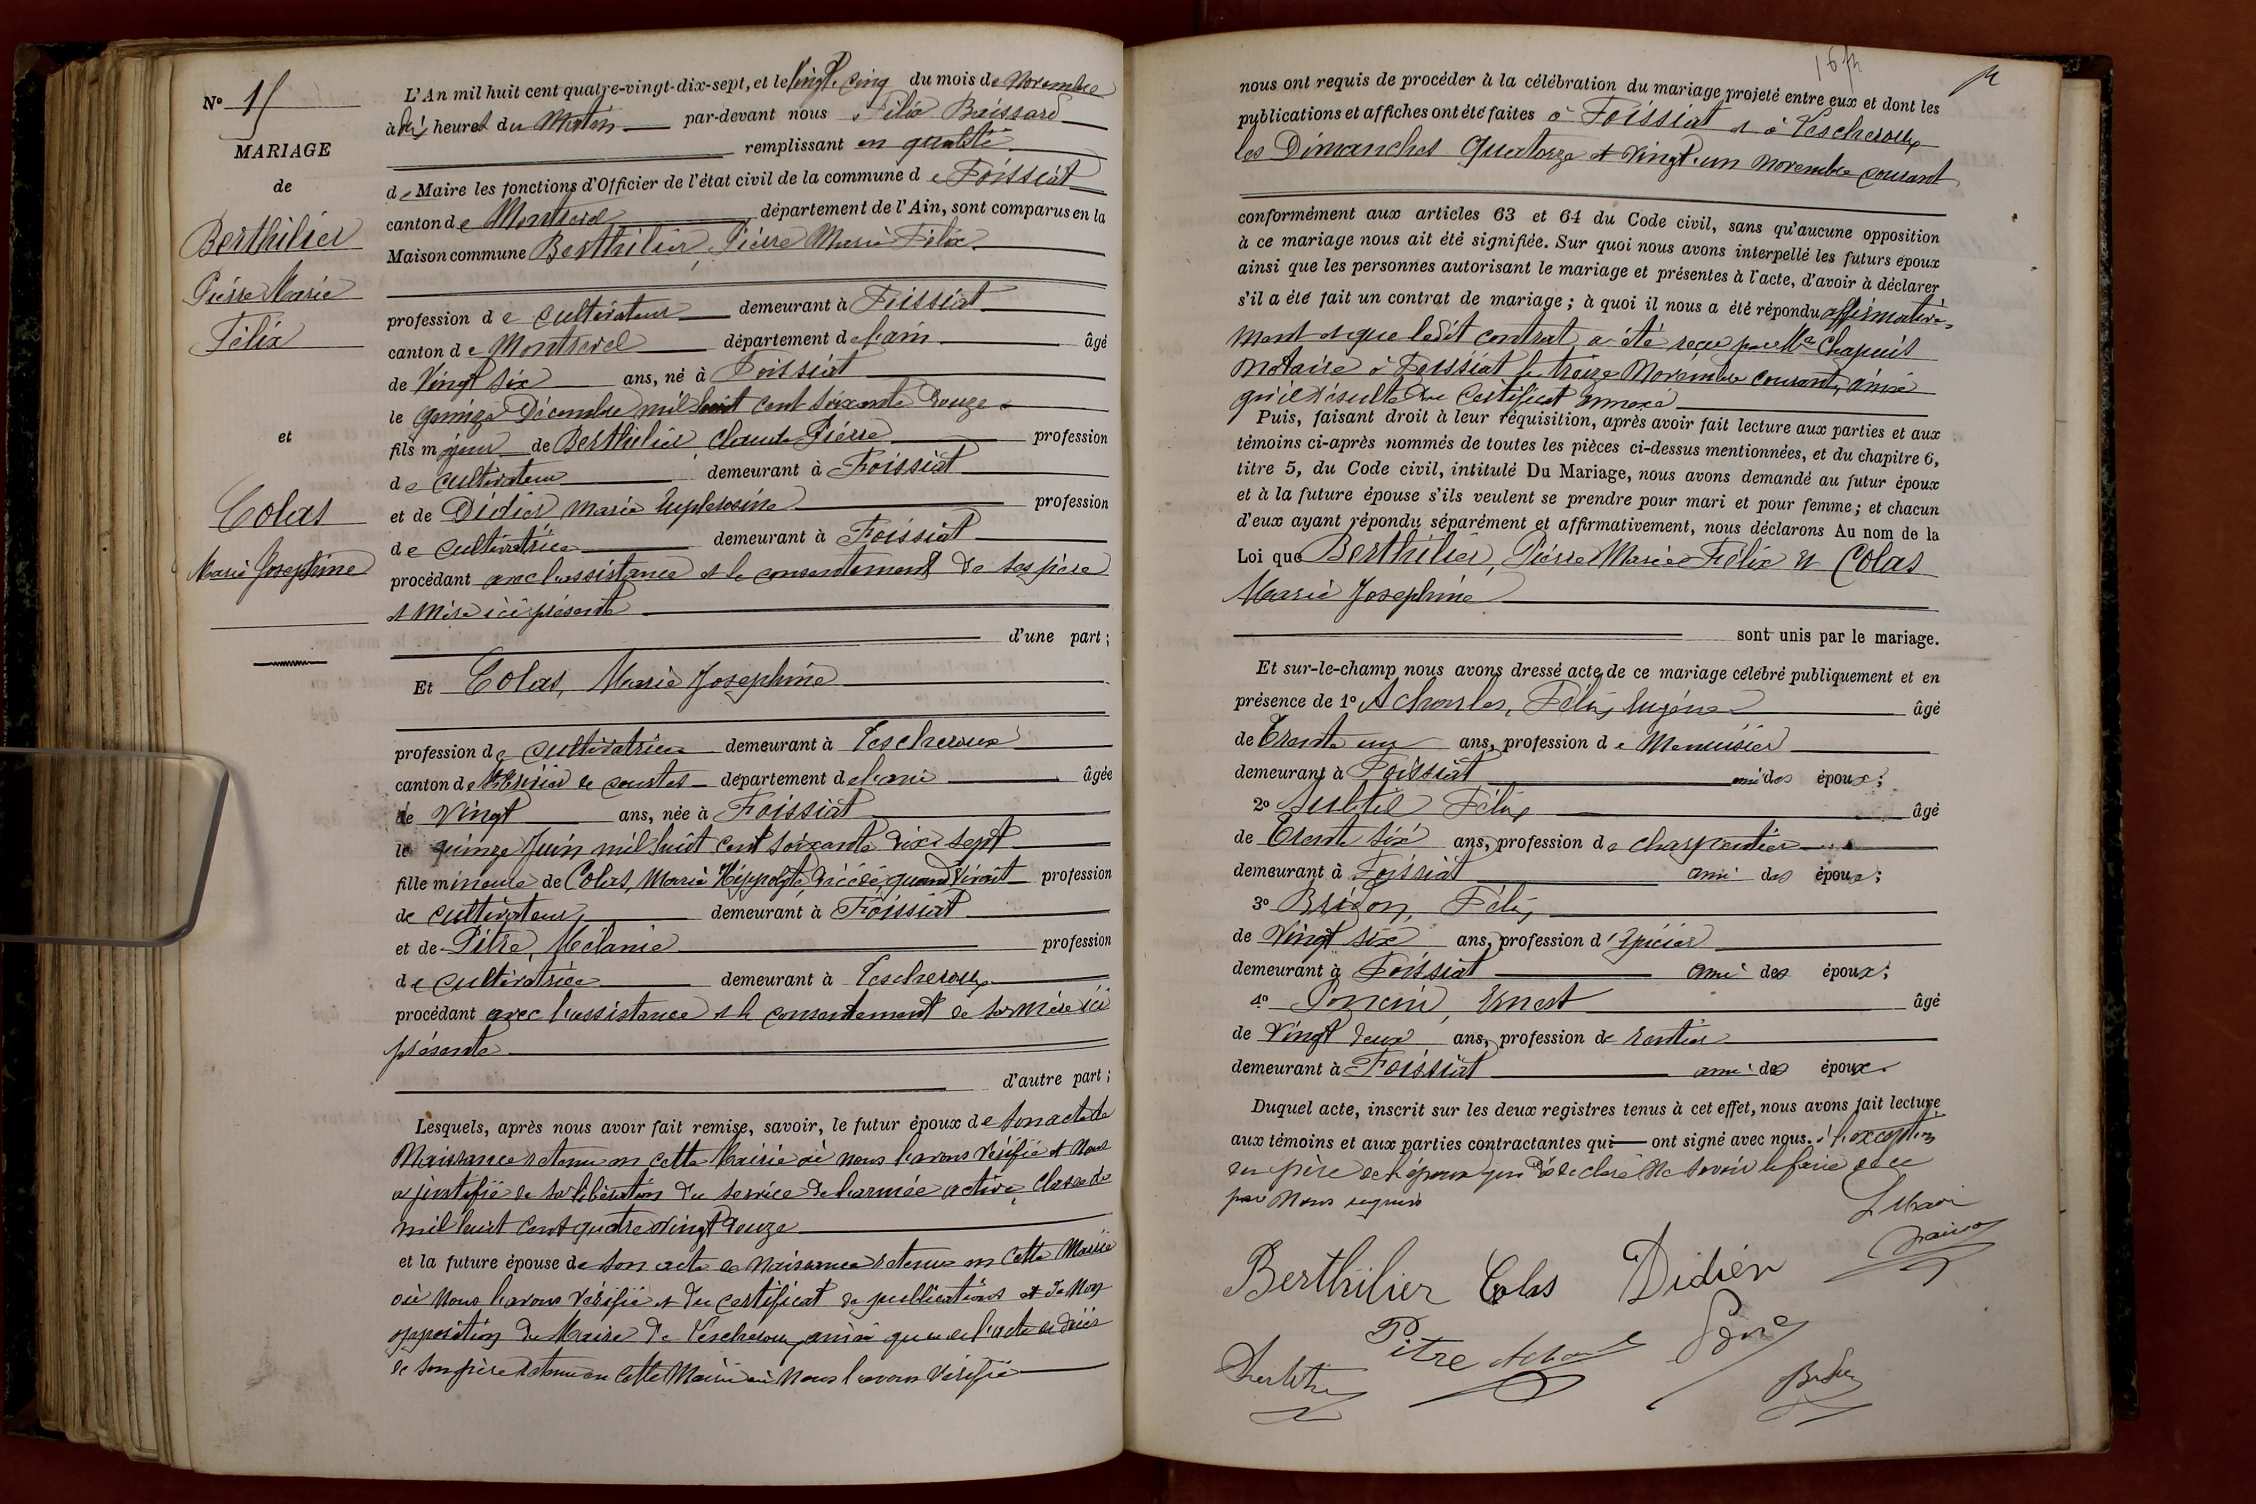 Nº 15
MARIAGE
de
Berthilier
Pierre Marie
Félix
et
Colas
Marie Joséphine
L'An mil huit cent quatre-vingt-dix-sept, et le vingt cinq du mois de Novembre
à dix heures du Matin par-devant nous Félix Baissard
remplissant en qualité
de Maire les fonctions d'Officier de l'état civil de la commune de Foissiat
canton de Montrevel département de l'Ain, sont comparus en la
Maison commune Berthilier, Pierre Marie Félix
profession de cultivateur demeurant à Foissiat
canton de Montrevel département de l'ain âgé
de Vingt six ans, né à Foissiat
le quinze Décembre mil huit cent soixante onze
fils majeur de Berthilier, Claude Pierre profession
de cultivateur demeurant à Foissiat
et de Didier Marie Euphrosine profession
de cultivatrice demeurant à Foissiat
procédant avec l'assistance et le consentement de ses père
et mère ici présents
d'une part;
Et Colas, Marie Joséphine
profession de cultivatrice demeurant à Lescheroux
canton de St Trivier de courtes département de l'ain âgée
de Vingt ans, née à Foissiat
le quinze Juin mil huit cent soixante dix sept
fille mineure de Colas, Marie Hippolyte, décédé, quand vivait profession
de cultivateur demeurant à Foissiat
et de Pitre, Mélanie profession
de cultivatrice demeurant à Lescheroux
procédant avec l'assistance et le consentement de sa mère ici
présente
d'autre part;
Lesquels, après nous avoir fait remise, savoir, le futur époux de son acte de
Naissance retenu en cette Mairie où nous l'avons vérifié et nous
a justifié de sa libération du service de l'armée active, Classe de
mil huit cent quatre vingt onze
et la future épouse de son acte de Naissance retenu en cette Mairie
où nous l'avons vérifié et du certificat de publications et de non
opposition du Maire de Lescheroux, ainsi que de l'acte de décès
de son père retenu en cette Mairie où nous l'avons vérifié
nous ont requis de procéder à la célébration du mariage projeté entre eux et dont les
publications et affiches ont été faites à Foissiat et à Lescheroux
les Dimanches Quatorze et vingt-un novembre courant
conformément aux articles 63 et 64 du Code civil, sans qu'aucune opposition
à ce mariage nous ait été signifiée. Sur quoi nous avons interpellé les futurs époux
ainsi que les personnes autorisant le mariage et présentes à l'acte, d'avoir à déclarer
s'il a été fait un contrat de mariage; à quoi il nous a été répondu affirmative-
ment et que ledit contrat a été reçu par Me Chapuis
Notaire à Foissiat le treize Novembre courant, ainsi
qu'il résulte du certificat annexé
Puis, faisant droit à leur réquisition, après avoir fait lecture aux parties et aux
témoins ci-après nommés de toutes les pièces ci-dessus mentionnées, et du chapitre 6,
titre 5, du Code civil, intitulé Du Mariage, nous avons demandé au futur époux
et à la future épouse s'ils veulent se prendre pour mari et pour femme; et chacun
d'eux ayant répondu séparément et affirmativement, nous déclarons Au nom de la
Loi que Berthilier, Pierre Marie Félix et Colas
Marie Joséphine
sont unis par le mariage.
Et sur-le-champ nous avons dressé acte de ce mariage célébré publiquement et en
présence de 1º Acharles, Félix Eugène âgé
de Trente un ans, profession de Menuisier
demeurant à Foissiat ami des époux;
2º Subtil Félix âgé
de Trente six ans, profession de charpentier
demeurant à Foissiat ami des époux;
3º Bridon, Félix
de Vingt six ans, profession d'épicier
demeurant à Foissiat ami des époux;
4º Poncin, Ernest âgé
de Vingt deux ans, profession de rentier
demeurant à Foissiat ami des époux.
Duquel acte, inscrit sur les deux registres tenus à cet effet, nous avons fait lecture
aux témoins et aux parties contractantes qui ont signé avec nous. à l'exception
du père de l'époux qui a déclaré ne savoir le faire de ce
par Nous requis
Berthilier Colas Didier
Pitre